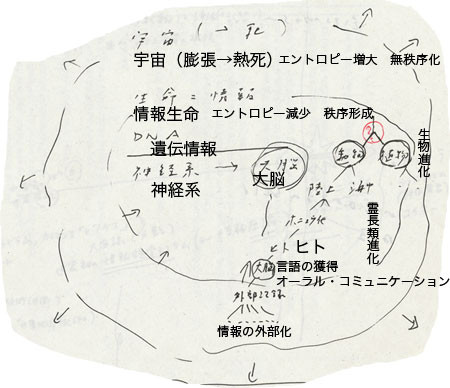 宇宙 (→ 死)
宇宙（膨張→熱死）エントロピー増大　無秩序化
生命=情報
情報生命　エントロピー減少　秩序形成
DNA
遺伝情報
神経系 → 大脳
神経系
大脳
?
動物
植物
生物進化
陸上
海中
霊長類進化
ホニュウ化
ヒト
ヒト
大脳
言語の獲得
オーラル・コミュニケーション
外部記録
情報の外部化